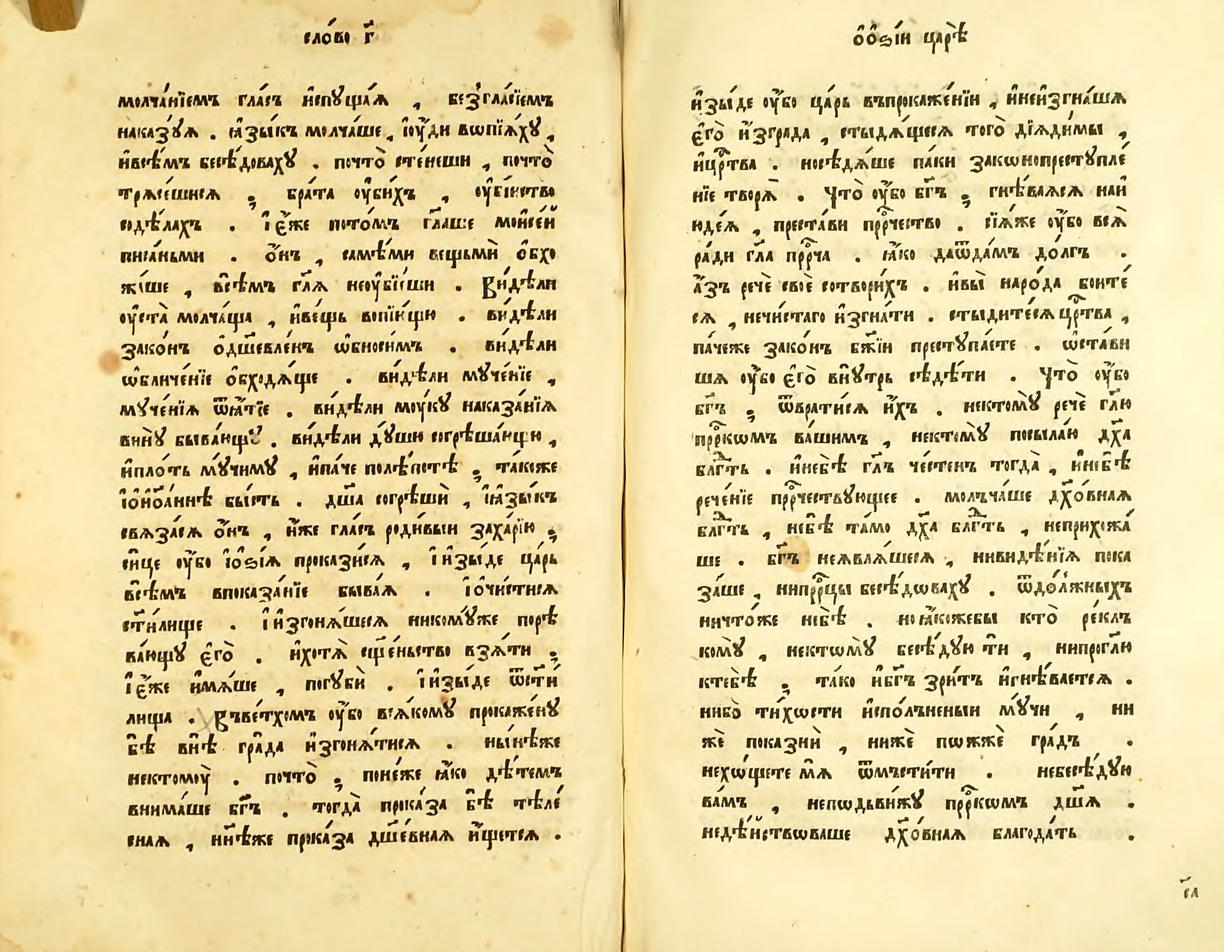 сло́во г҃
молча́нїемъ гла́съ и҆спꙋща́ѧ , безъгла́сїемъ
наказꙋ́ѧ . ꙗ҆зы́къ молча́ше , і҆ꙋ́ди вопїѧ́хꙋ ,
и҆всѣ́мъ бесѣ́довахꙋ . почто̀ сте́неши , почто̀
трѧсе́шисѧ ; бра́та оу҆би́хъ , оу҆бі́иство
содѣ́лахъ . і҆е҆́же пото́мъ гл҃аше мѡисе́й
писа́ньми . ѻ҆́нъ , самѣ́ми вещьмѝ ѻ҆бхо
жа́ше , всѣ́мъ гл҃ѧ неоу҆бїе́ши . ви́дѣли
оу҆ста̀ молча́ща , и҆ве́щь вопїю́щю . ви́дѣли
зако́нъ ѻ҆дш҃евле́нъ ѡ҆бноси́мъ . ви́дѣли
ѡ҆бличе́нїе ѻ҆бходѧ́ще . ви́дѣли мꙋче́нїе ,
мꙋче́нїѧ ѿꙗ́тїе . ви́дѣли мꙋ́кꙋ наказа́нїѧ
винꙋ̀ быва́ющꙋ . ви́дѣли дꙋ́шꙋ согрѣша́ющю ,
и҆пло́ть мꙋ́чимꙋ , и҆па́че полѣ́потѣ ; тако́же
і҆ѻ҆и҆ѻ҆а́ннѣ бы́сть . дш҃а̀ согрѣшѝ , і҆ꙗ҆зы́къ
свѧза́сѧ ѻ҆́нъ , и҆́же гла́съ роди́выи заха́рїю ;
си́це оу҆́бо і҆ѻ҆́ѕїѧ прокази́сѧ , і҆изы́де ца́рь
всѣ́мъ впоказа́нїе быва́ѧ . і҆ѻ҆чи́стисѧ
ст҃и́лище . і҆изгонѧ́шесѧ никомꙋ́же порѣ
ва́ющꙋ є҆го̀ . и҆хотѧ̀ сщ҃е́ньство взѧ́ти ;
і҆е҆́же и҆мѧ́ше , погꙋбѝ . і҆изы́де ѿст҃и
лища . въве́тхомъ оу҆́бо всѧ́комꙋ прокаже́нꙋ
бѣ̀ внѣ̀ гра́да и҆згонѧ́тисѧ . ны́нѣже
нектомꙋ̀ . почто̀ ; поне́же ꙗ҆́ко дѣ́темъ
внима́ше бг҃ъ . тогда̀ прока́за бѣ̀ тѣле́
снаѧ , нн҃ѣже прока́за дш҃е́внаѧ и҆́щетсѧ .
ѻ҆ѻ҆ѕі́и царѣ̀
и҆зы́де оу҆́бо ца́рь въпрокаже́нїи , и҆неи҆згна́шѧ
є҆го̀ и҆згра́да , стыдѧ́щесѧ того̀ дїѧди́мы ,
и҆црⷭ҇тва . носѣдѧ́ше па́ки законопрестꙋпле́
нїе творѧ̀ . что̀ оу҆́бо бг҃ъ ; гнѣ́ваѧсѧ наи҆
ꙋдеѧ , преста́ви прⷪ҇рчество . сїѧ́же оу҆́бо всѧ̀
ра́ди гл҃а прⷪ҇рча . ꙗ҆́ко даѿда́мъ до́лгъ .
а҆́зъ речѐ своѐ сотвори́хъ . и҆вы̀ наро́да бои́те
сѧ , нечи́стаго и҆згна́ти . стыди́тесѧ црⷭ҇тва ,
па́чеже зако́нъ бж҃їи престꙋпа́ете . ѡ҆ста́ви
шѧ оу҆́бо є҆го̀ внꙋ́трь сѣдѣ́ти . что̀ оу҆́бо
бг҃ъ ; ѿврати́сѧ и҆́хъ . нектомꙋ̀ речѐ гл҃ю
прⷪ҇ркомъ ва́шимъ , нектомꙋ̀ посыла́ю дх҃а
блгⷣть . и҆небѣ̀ гл҃ъ че́стенъ тогда̀ , и҆небѣ̀
рече́нїе прⷪ҇рчествꙋющее . молъча́ше дх҃о́внаѧ
блгⷣть , небѣ̀ та́мо дх҃а блгⷣть , неприхожа́
ше . бг҃ъ неꙗвлѧ́шесѧ , нивидѣ́нїѧ пока
за́ше , нипрⷪ҇рцы бесѣ́довахꙋ . ѿдо́лжныхъ
ничто́же небѣ̀ . ноꙗ҆́кожебы кто̀ ре́клъ
комꙋ̀ , нектомꙋ̀ бесѣ́дꙋю тѝ , нипрогл҃ю
ктебѣ̀ ; та́ко и҆бг҃ъ зри́тъ и҆гнѣ́ваетсѧ .
нибо̀ ти́хости и҆спо́лъненыи мꙋ́чи , ни
жѐ показнѝ , ни́жѐ пожжѐ гра́дъ .
нехо́щете мѧ̀ ѿмьсти́ти . небесѣ́дꙋю
ва́мъ , неподви́жꙋ прⷪ҇ркомъ дш҃ѧ .
недѣ́йствоваше дх҃о́внаѧ благода́ть .
с҃л